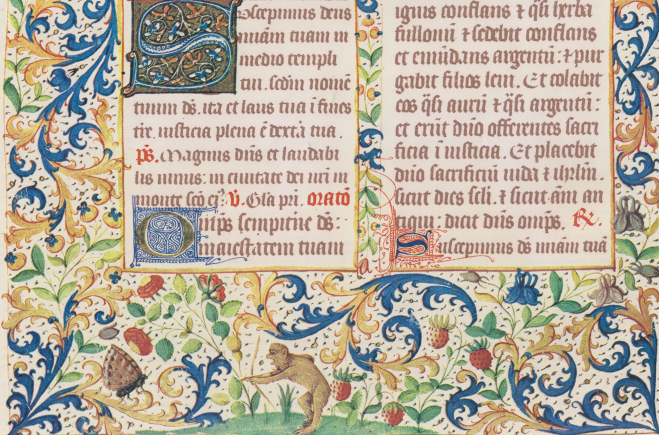 Suscepimus deus
misericordiam tuam in
medio templi
tui. scdm nomē
tuum ds. ita et laus tua ī fines
tre. iusticia plena ē dextā tua.
ps. Magnus dns et laudabi
lis nimis: in ciuitate dei nri in
monte scō eiꝰ. V. Gla pri. oratō
Omps sempitne ds:
maiestatem tuam
ignis conflans ⁊ qsi herba
fullonū ⁊ sedebit conflans
et emūdans argentū: ⁊ pur
gabit filios leui. Et colabit
eos qsi aurū ⁊ qsi argentū:
et erūt dno offerentes sacri
ficia ī iusticia. Et placebit
dno sacrificiū iuda ⁊ ihrlm
sicut dies scli. ⁊ sicut āni an
: dicit dns omps. R.
Suscepimus ds miām tuā